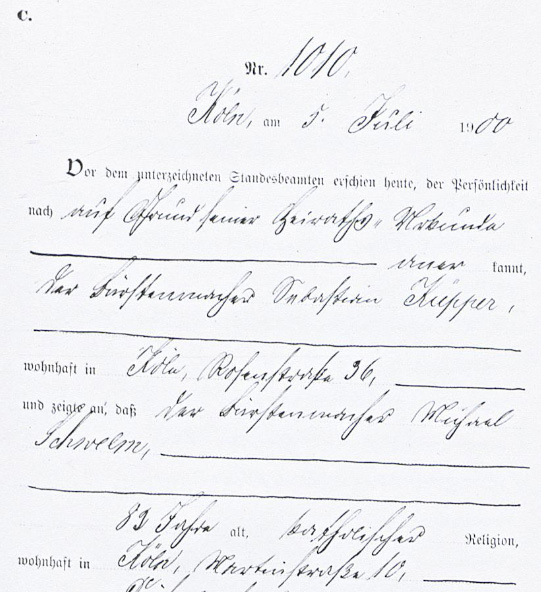 C.
Nr. 1010.
Köln, am 5. Juli 1900
Vor dem unterzeichneten Standesbeamten erschien heute, der Persönlichkeit
nach auf Grund seiner Heiraths-Urkunde
aner kannt,
der Bürstenmacher Sebastian Küpper,
wohnhaft in Köln, Rosenstraße 36,
und zeigte an, daß der Bürstenmacher Michael
Schwelm,
82 Jahre alt, katholischer Religion,
wohnhaft in Köln, Martinstraße 10,